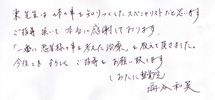 東先生は体の事を知りつくしたスペシャリストだと思います
ご指導頂いて本当に感謝しております。
「一番に患者様の事を考えた治療」を教えて頂きました。
今後ともよろしくご指導をお願い致します
しおたに整骨院